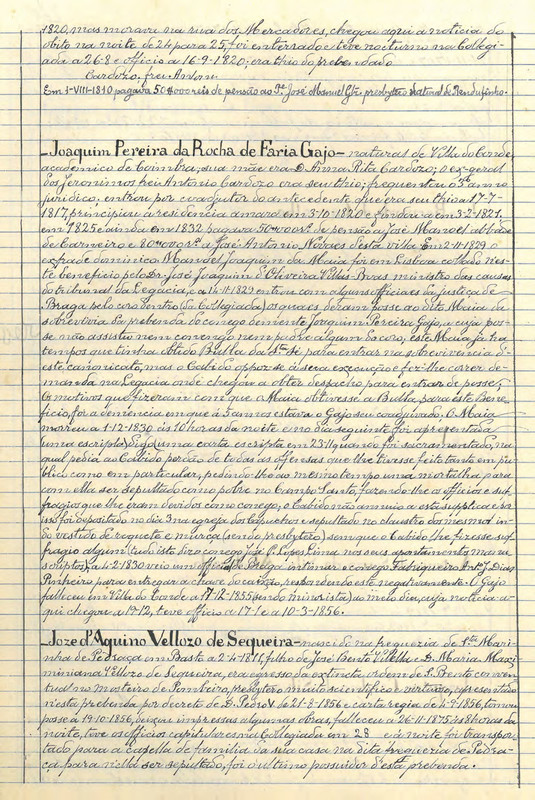 1820, mas morava na rua dos Mercadores, chegou aqui a noticia do
obito na noite de 24 para 25, foi enterrado e teve nocturno na Collegi-
ada a 26-8 e officio a 16-9-1820; era thio do prebendado
Cardozo, frei Antoni.
Em 1-VIII-1810 pagava 50$000 reis de pensão ao Pe. José Manuel Glz. presbytero natural de Rendufinho.
Joaquim Pereira da Rocha de Faria Gajo - natural de Villa do Conde,
academico de Coimbra; sua mãe era D. Anna Rita Cardozo; o ex-geral
dos Jeronimos frei Antonio Cardozo era seu thio; frequentou o 3º anno
juridico, entrou por coadjutor do antecedente que era seu thio a 17-7-
1817, principiou a residencia amara em 3-10-1820 e findou-a em 3-2-1821,
em 1825 e ainda em 1832 pagava 50$000 rs. de pensão a José Manoel abbade
de Carneiro e 80$000 rs. a José Antonio Novaes desta villa. Em 2-11-1829 o
exfrade dominico Manoel Joaquim da Maia foi em Lisboa collado nes-
te beneficio pelo Dr. José Joaquim d'Oliveira Villas-Boas ministro das causas
do tribunal da Legacia, e a 14-11-1829 entrou com alguns officiaes da justiça de
Braga pelo coro dentro (da Collegiada) os quaes deram posse ao dito Maia da
sobrevivia da prebenda do conego demente Joaquim Pereira Gajo, a cuja pos-
se não assistiu nem conego nem padre algum do coro, este Maia já ha
tempos que tinha obtido Bulla da Sta. Sé para entrar na sobrevivencia d'
este canonicato, mas o Cabido oppoz-se á sua execução e fez-lhe correr de-
manda na Legacia onde chegou a obter despacho para entrar de posse;
os motivos que fizeram com que o Maia obtivesse a Bulla para este bene-
ficio, foi a demencia em que á 5 annos estava o Gajo seu coadjuvado. O Maia
morreu a 1-12-1830 ás 10 horas da noite e no dia seguinte foi apresentada
(uma escripta) digo, uma carta escripta em 23-11 quando foi sacramentado, na
qual pedia ao Cabido perdão de todas as offensas que lhe tivesse feito tanto em pu-
blico como em particular, pedindo-lhe ao mesmo tempo uma mortalha para
com ella ser sepultado como pobre no Campo Santo, fazendo-lhe os officios e suf-
fragios que lhe eram devidos como conego, o Cabido não annuio a esta supplica e n'
isso foi depositado no dia 3 na egreja dos Capuchos e sepultado no claustro do mesmo in-
do vestido de roquete e murça (sendo presbytero) sem que o Cabido lhe fizesse suf-
fragio algum (tudo isto diz o conego José P. Lopes Lima nos seus apontamentos manu-
scriptos); a 4-2-1830 veio um official de Braga intimar o conego Fabriqueiro Ant. J. Dias
Pinheiro para entregar a chave do caixão, respondendo este negativamente. O Gajo
falleceu em Villa do Conde a 17-12-1855 (sendo minorista) ao meio dia, cuja noticia a-
qui chegou a 19-12, teve officio a 17-1 e a 10-3-1856.
Joze d'Aquino Vellozo de Sequeira - nasceu na freguezia de Sta. Mari-
nha de Pedraça em Basto a 2-4-1811, filho de José Bento Villella e D. Maria Maxi-
miniana Vellozo de Sequeira, era egresso da extincta ordem de S. Bento conven-
tual no mosteiro de Pombeiro, presbytero muito scientifico e virtuoso, apresentado
n'esta prebenda por decreto de D. Pedro V de 21-8-1856 e carta regia de 4-9-1856, tomou
posse a 19-10-1856, deixou impressas algumas obras, falleceu a 26-11-1875 ás 8 horas da
noite, teve os officios capitulares na Collegiada em 28 e á noite foi transpor-
tado para a capella de familia da sua casa na dita freguezia de Pedra-
ça para n'ella ser sepultado, foi o ultimo possuidor d'esta prebenda.